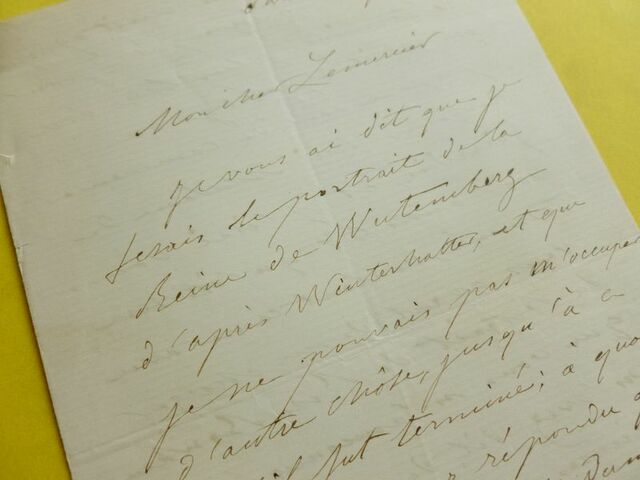 Mon cher Lemercier
Je vous ai dit que je
ferais le portrait de la
Reine de Wutemberg
d'après Winterhalter, et que
je ne pouvais pas m'occuper
d'autre chôse, jusqu'à c
qu'il fut terminé; à quo
répondu